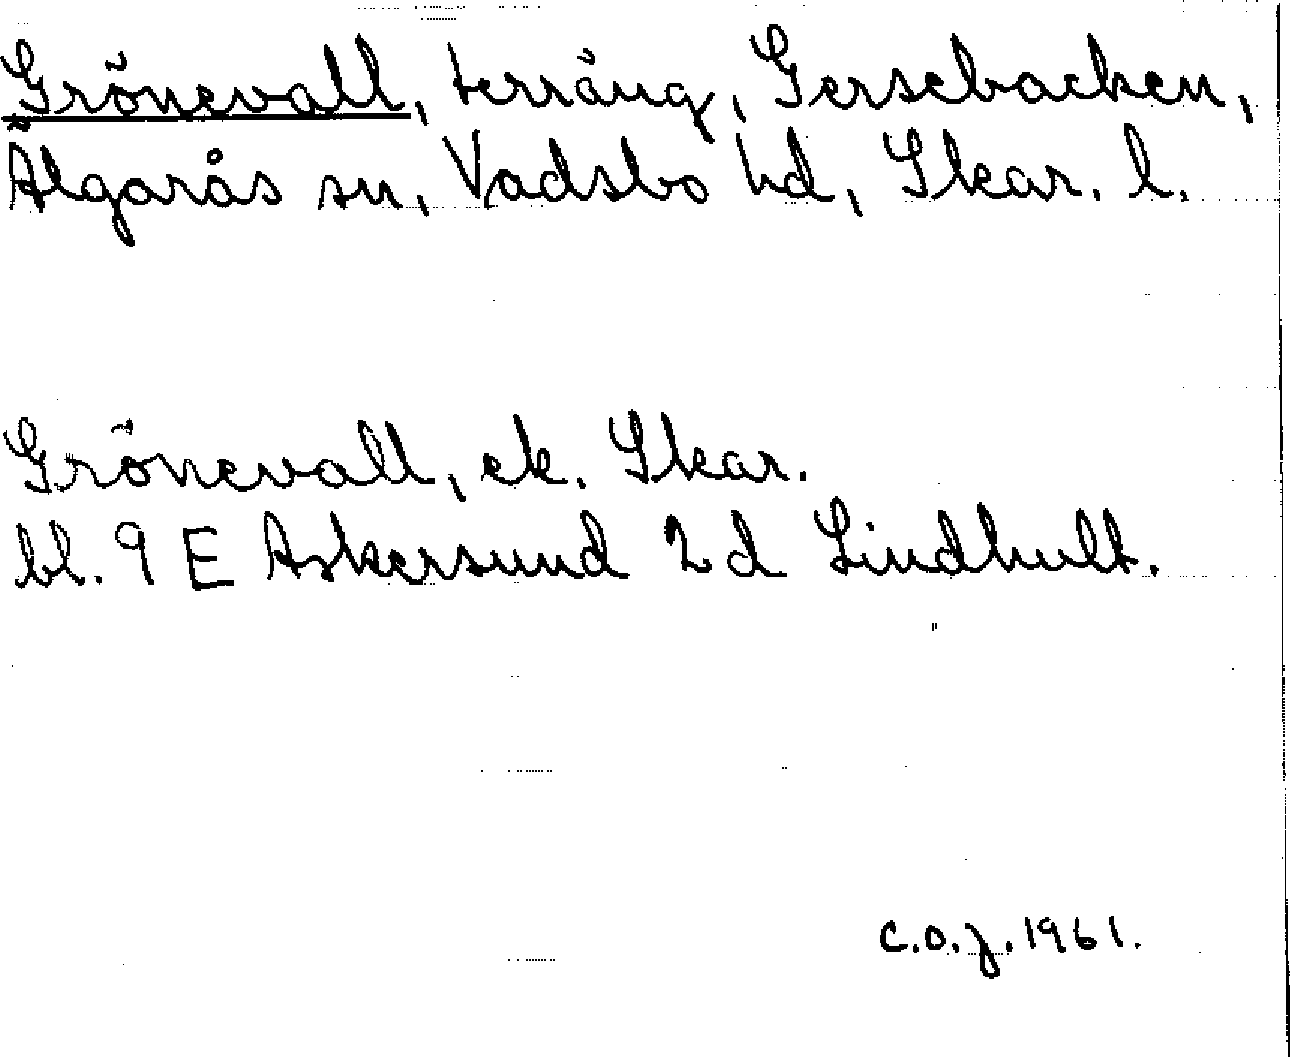 Grönevall, terräng, Gersebacken,
Älgarås sn, Vadsbo hd, Skar. l.
Grönevall, ek. Skar.
bl. 9 E Askersund 2 d Lindhult.
C.O.J. 1961.